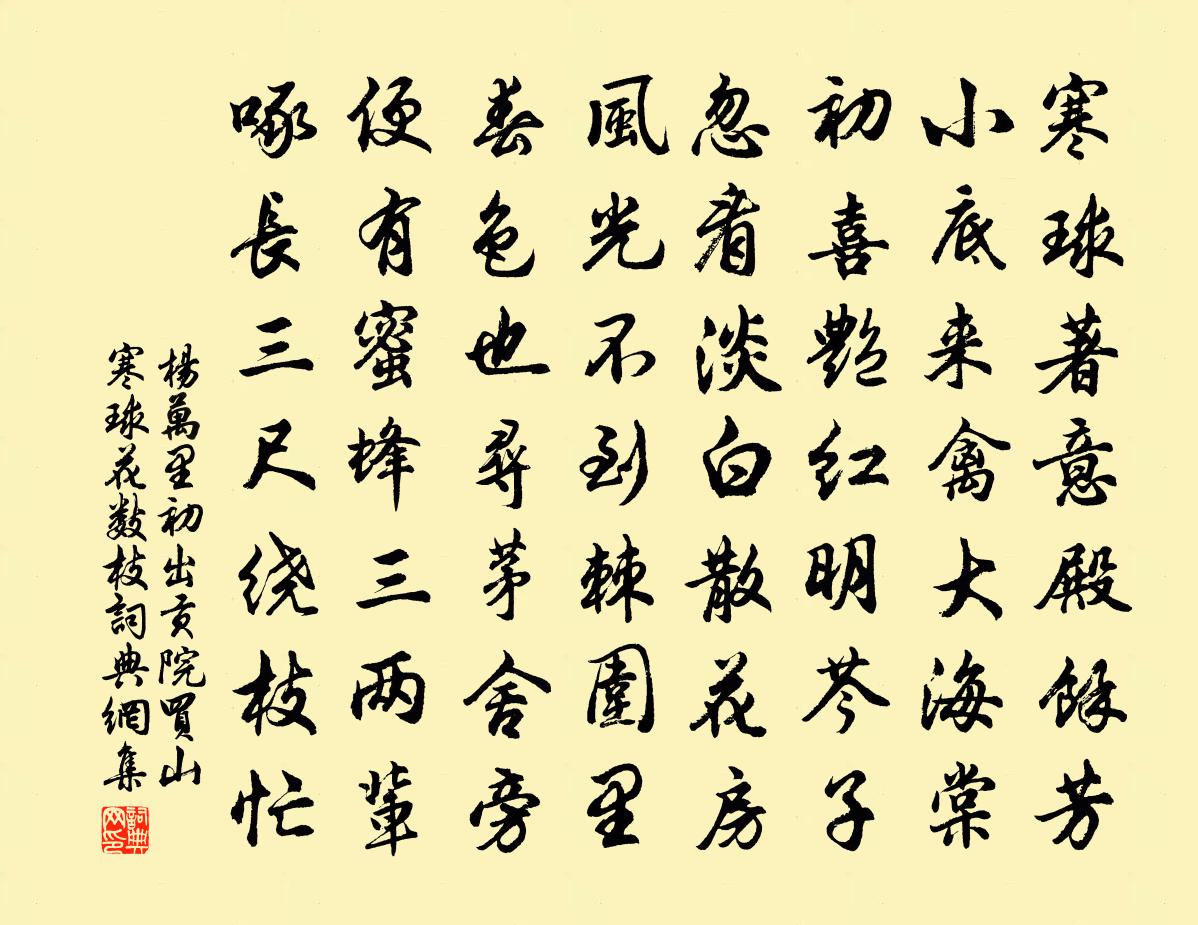 寒球著意殿餘芳
小底来禽大海棠
初喜艷红明芩子
忽看淡白散花房
風光不到棘圍里
春色也尋茅舍旁
便有蜜蜂三两輩
啄長三尺绕枝忙
楊萬里初出贡院買山
寒球花数枝詞典網集
詞典网印